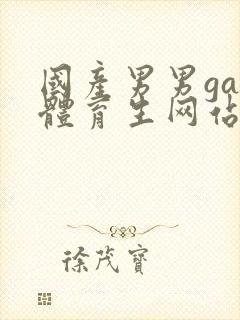 國產男男ga
體育生网佔
徐茂寶